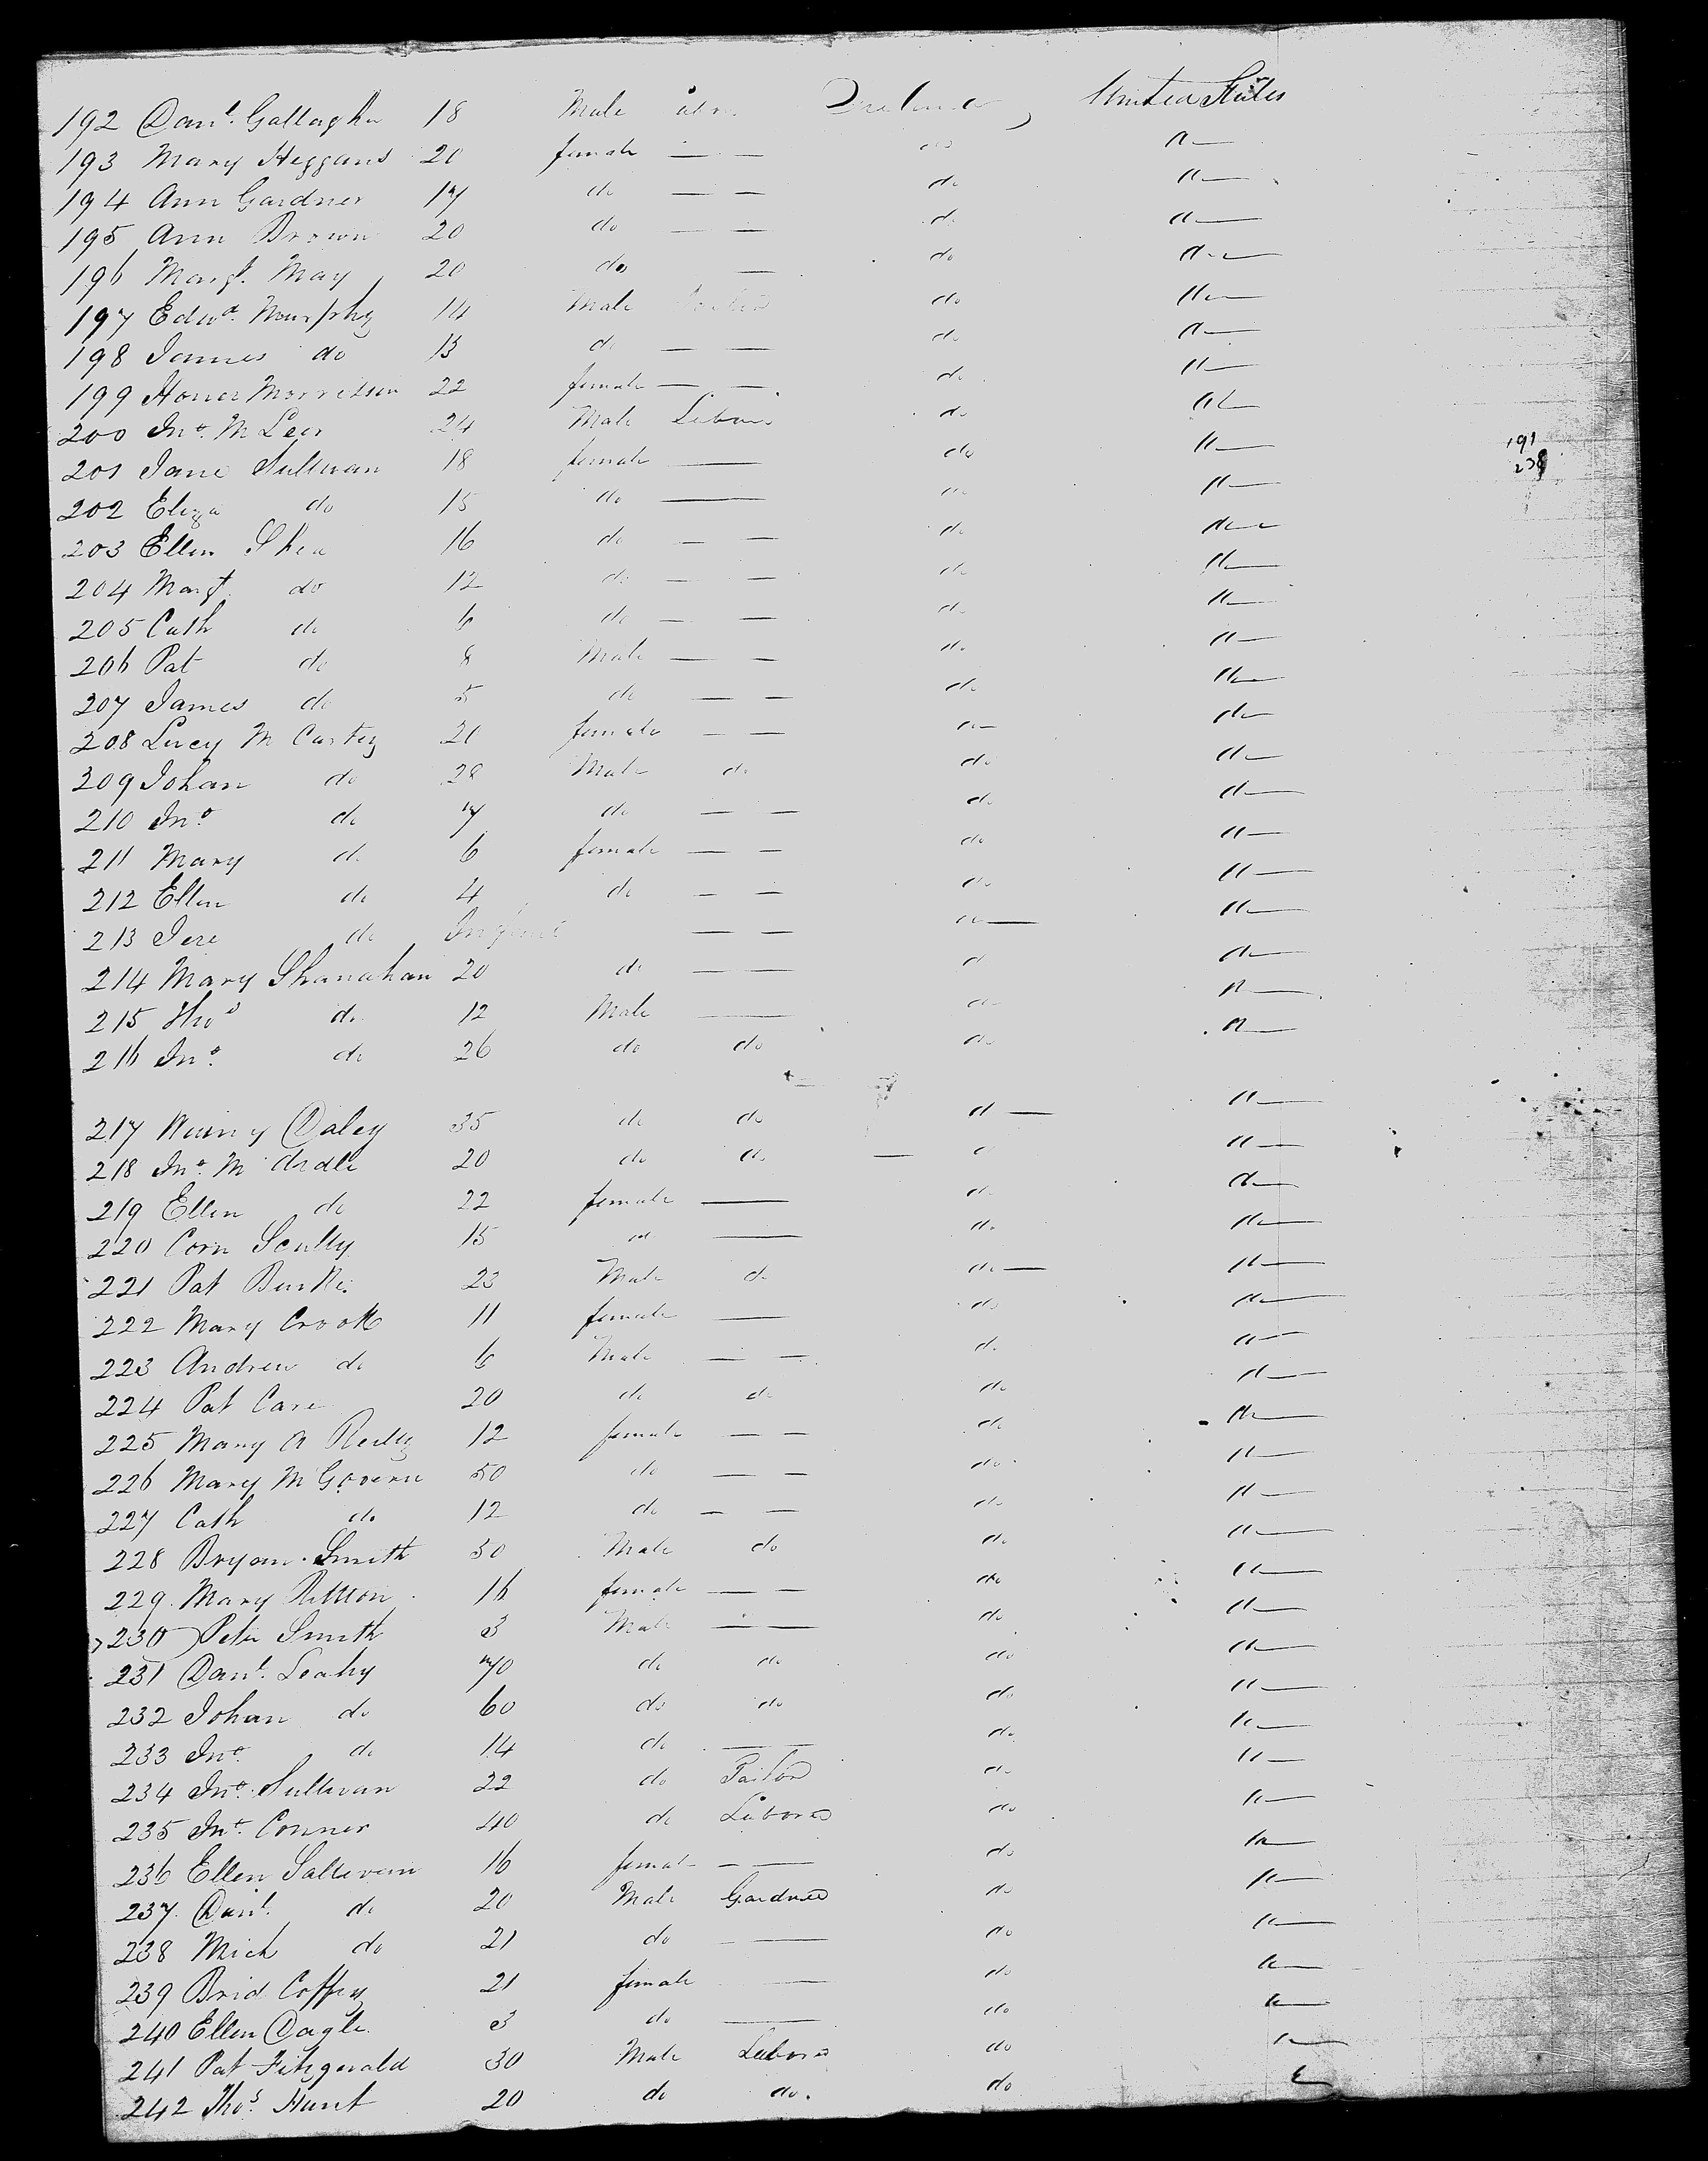 192 Danl. Gallagher 18 Male Ireland United States
193 Mary Heggans 20 female — — do
194 Ann Gardner 17 do — — do do
195 Ann Brown 20 do — — do do
196 Margt. May 20 do — do do
197 Edwd. Murphy 14 Male do do
198 James do 13 do — — do do
199 Honor Morrison 22 female — — do do
200 Jno. McLeer 24 Male Laborer do do
201 Jane Sullivan 18 female — do do 191
202 Eliza do 15 do — do do 238
203 Ellen Shea 16 do — — do do
204 Margt. do 12 do — — do do
205 Cath do 6 do — — do do
206 Pat do 8 Male — — do do
207 James do 5 do — — do do
208 Lucy McCartey 20 female — — do do
209 Johan do 28 Male do do do
210 Jno. do 7 do — — do do
211 Mary do 6 female — — do do
212 Ellen do 4 do — — do do
213 Jere do Infant — — do do
214 Mary Shanahan 20 do — — do do
215 Thos do 12 Male — do do
216 Jno. do 26 do do do do
217 Daley 35 do do do do
218 Jno. McArdle 20 do do do do
219 Ellen do 22 female — do do
220 Corn Scully 15 do — do do
221 Pat Burke 23 Male do do do
222 Mary Crook 11 female — do do
223 Andrew do 6 Male — — do do
224 Pat Care 20 do do do do
225 Mary A Reilly 12 female — — do do
226 Mary McGovern 50 do — — do do
227 Cath do 12 do — — do do
228 Bryan Smith 50 Male do do do
229 Mary 16 female — — do do
230 Peter Smith 3 Male — — do do
231 Danl. Leahy 70 do do do do
232 Johan do 60 do do do do
233 Jno. do 14 do — do do
234 Jno. Sullivan 22 do Tailor do do
235 Jno. Conner 40 do Laborer do do
236 Ellen Sullivan 16 female — — do do
237 Danl. do 20 Male Gardner do do
238 Mich do 21 do — do do
239 Brid Coffey 21 female — do do
240 Ellen Dagle 3 do — do do
241 Pat Fitzgerald 30 Male Laborer do do
242 Thos. Hunt 20 do do. do